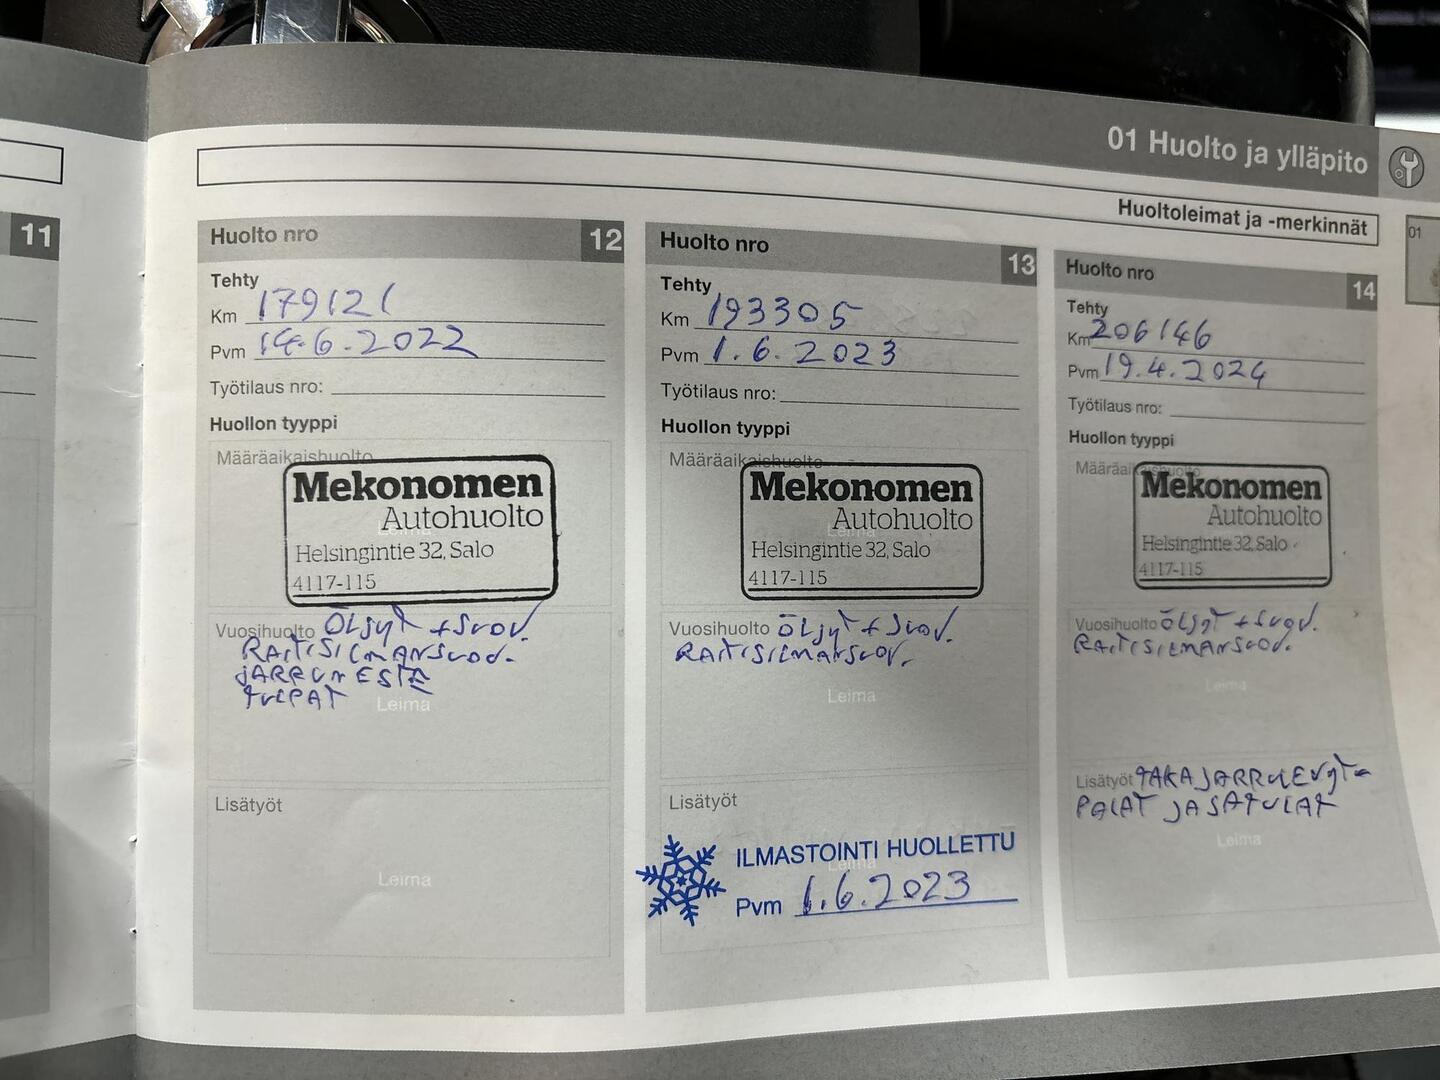 01 Huolto ja ylläpito
Huoltoleimat ja -merkinnät
01
11
Huolto nro 12
Tehty
Km 179121
Pvm 14.6.2022
Työtilaus nro:
Huollon tyyppi
Määräaikaishuolto
Leima
Mekonomen
Autohuolto
Helsingintie 32, Salo
4117-115
Vuosihuolto ÖLJYT + SUOD.
RAITISILMANSUOD.
JARRUNESTE
TULPAT
Leima
Lisätyöt
Leima
Huolto nro 13
Tehty
Km 193305
Pvm 1.6.2023
Työtilaus nro:
Huollon tyyppi
Määräaikaishuolto
Leima
Mekonomen
Autohuolto
Helsingintie 32, Salo
4117-115
Vuosihuolto ÖLJYT + SUOD.
RAITISILMANSUOD.
Leima
Lisätyöt
ILMASTOINTI HUOLLETTU
Leima
Pvm 1.6.2023
Huolto nro 14
Tehty
Km 206146
Pvm 19.4.2024
Työtilaus nro:
Huollon tyyppi
Määräaikaishuolto
Mekonomen
Autohuolto
Helsingintie 32, Salo
4117-115
Vuosihuolto ÖLJYT + SUOD.
RAITISILMANSUOD.
Leima
Lisätyöt TAKAJARRULEVYT-
PALAT JA SATULAT
Leima